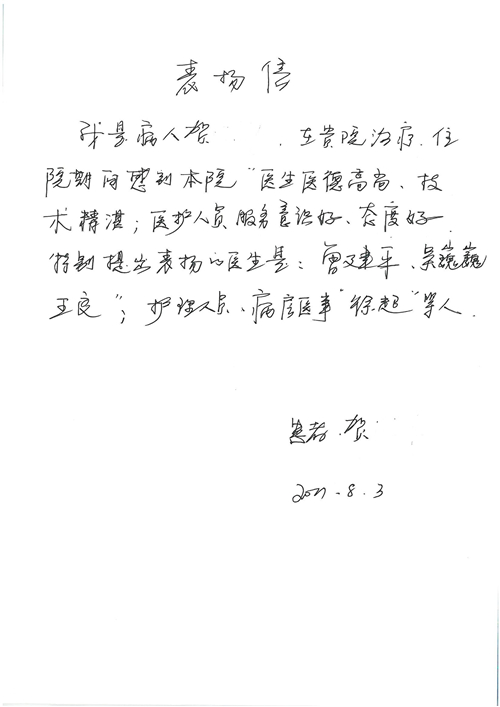 表扬信
我是病人贺 、在贵院治疗.住
院期间感到本院“医生医德高尚、技
术精湛；医护人员服务意识好、态度好
特别提出表扬的医生是：曾文建平、吴巍巍
王良”；护理人员、病房医事“徐超”等人.
患者.贺
8.3